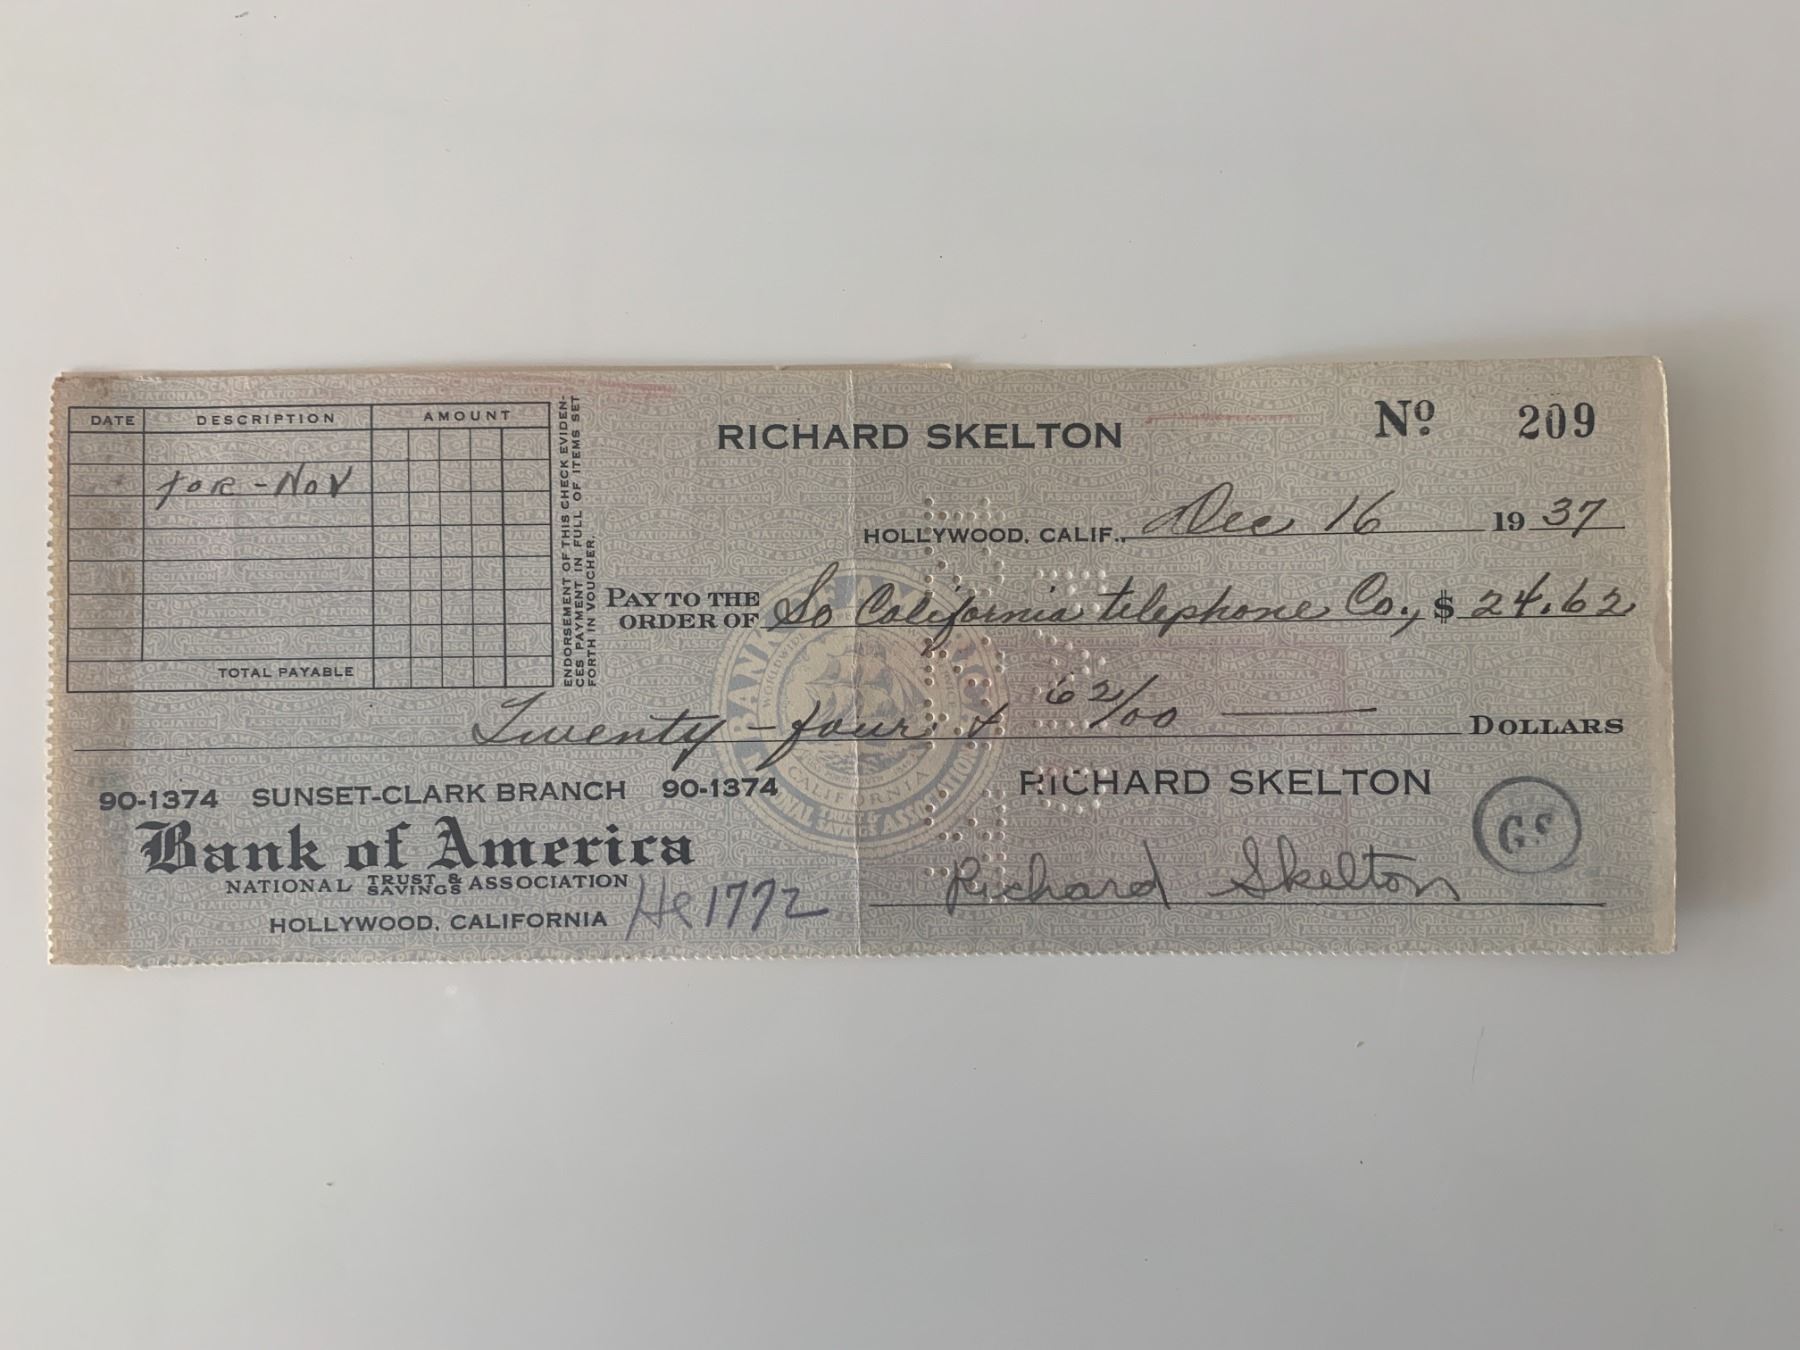 DATE DESCRIPTION AMOUNT
for - Nov
TOTAL PAYABLE
ENDORSEMENT OF THIS CHECK EVIDEN-
CES PAYMENT IN FULL OF ITEMS SET
FORTH IN VOUCHER.
RICHARD SKELTON
Nº 209
HOLLYWOOD, CALIF., Dec 16 1937
PAY TO THE
ORDER OF So California telephone Co., $ 24.62
Twenty-four & 62/00 DOLLARS
90-1374 SUNSET-CLARK BRANCH 90-1374
Bank of America
NATIONAL TRUST & SAVINGS ASSOCIATION
HOLLYWOOD, CALIFORNIA He 1772
RICHARD SKELTON
Richard Skelton
GS